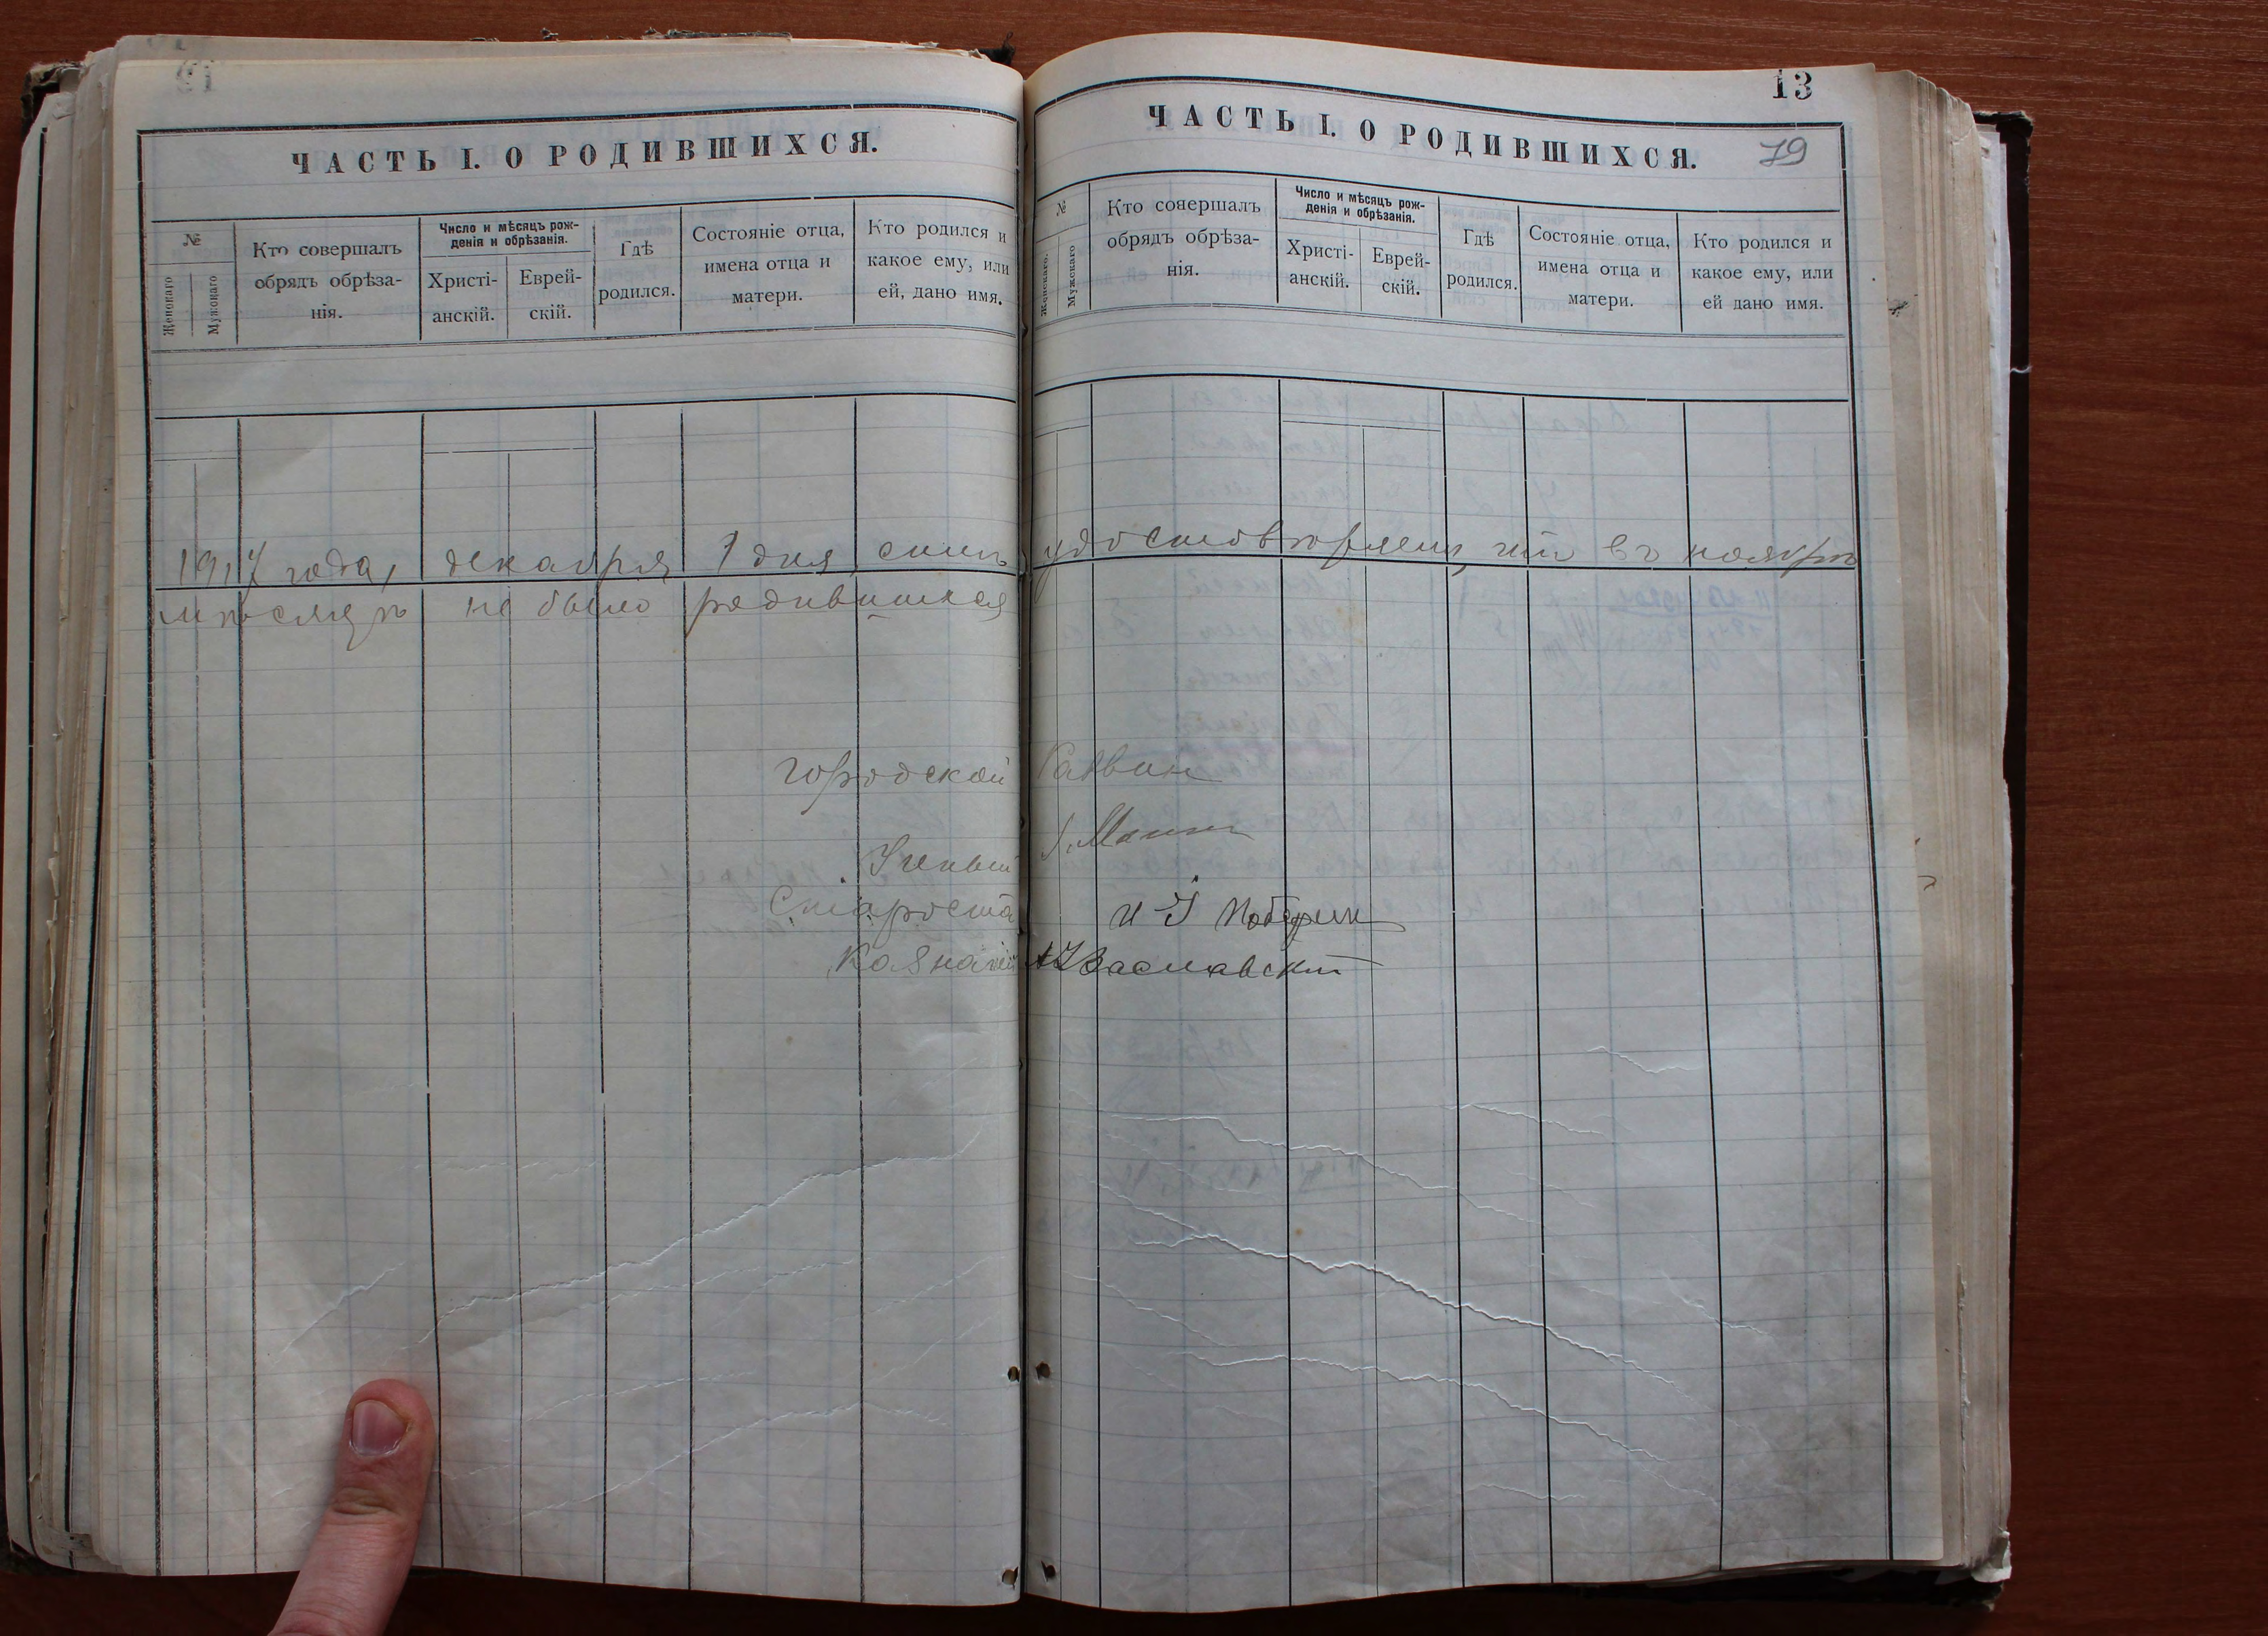 13
ЧАСТЬ I. О РОДИВШИХСЯ.
№
Женскаго
Мужскаго
Кто совершалъ
обрядъ обрѣза-
нія.
Число и мѣсяцъ рож-
денія и обрѣзанія.
Христі-
анскій.
Еврей-
скій.
Гдѣ
родился.
Состояніе отца,
имена отца и
матери.
Кто родился и
какое ему, или
ей, дано имя.
ЧАСТЬ I. О РОДИВШИХСЯ.
79
№
Женскаго.
Мужскаго
Кто сояершалъ
обрядъ обрѣза-
нія.
Число и мѣсяцъ рож-
денія и обрѣзанія.
Христі-
анскій.
Еврей-
скій.
Гдѣ
родился.
Состояніе отца,
имена отца и
матери.
Кто родился и
какое ему, или
ей дано имя.
1917 года, декабря 1 дня, симъ удостовѣряемъ, что въ ноябрѣ
мѣсяцѣ не было родившихся
Городской Раввин
Ученый
Староста И
Казначей Заславский